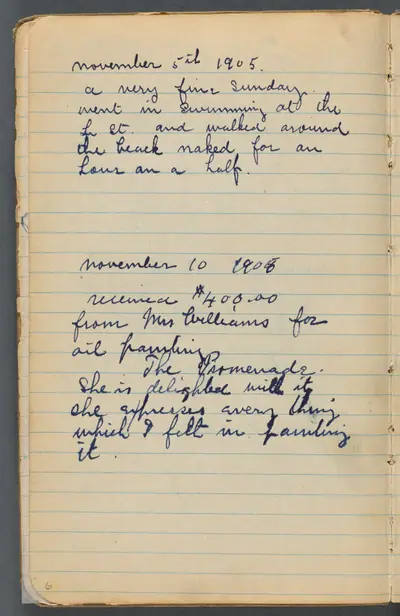 november 5th 1905.
a very fine Sunday.
went in swimming at the
L St. and walked around
the beach naked for an
hour an a half.
november 10 1905
received $400.00
from Mrs Williams for
oil painting
The Promenade.
She is delighted with it
she expresses every thing
which I felt in painting
it.
6